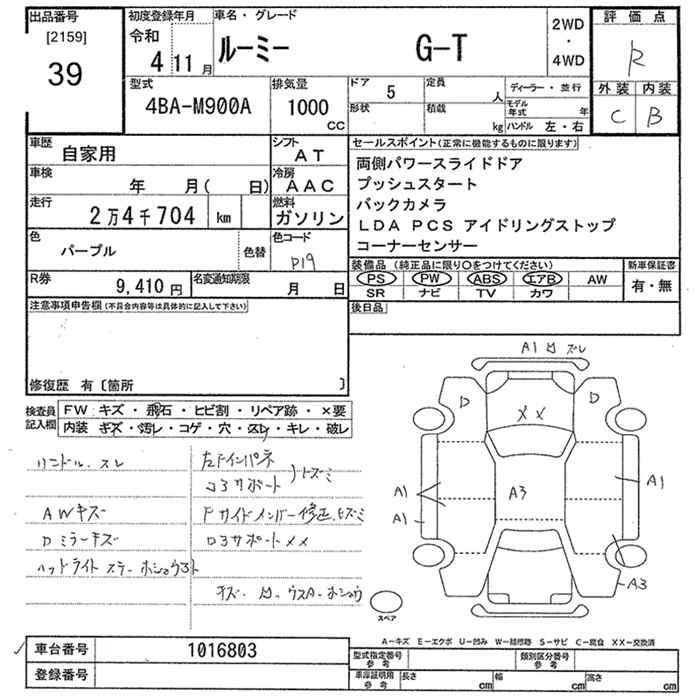 出品番号
[2159]
39
初度登録年月
令和
4 11 月
車名・グレード
ルーミー G-T
2WD
・
4WD
評価点
R
外装 内装
C B
型式
4BA-M900A
排気量
1000
CC
ドア 5
形状
定員 人
積載 kg
ディーラー・並行
モデル年式 年
ハンドル 左・右
車歴
自家用
シフト
AT
車検
年 月( 日)
冷房
AAC
走行
2万4千704 km
燃料
ガソリン
色
パープル
色替
色コード
P19
R券
9,410 円
名変通知期限
月 日
セールスポイント(正常に機能するものに限ります)
両側パワースライドドア
プッシュスタート
バックカメラ
LDA PCS アイドリングストップ
コーナーセンサー
装備品 (純正品に限り○をつけてください)
PS PW ABS エアB AW
SR ナビ TV カワ
新車保証書
有・無
後日品
注意事項申告欄 (不具合内容等は具体的に記入して下さい)
修復歴 有〔箇所 〕
検査員
記入欄
FW:キズ・飛石・ヒビ割・リペア跡・×要
内装 キズ・汚レ・コゲ・穴・スレ・キレ・破レ
ハンドル.スレ
AWキズ
Dミラーキズ
ヘッドライト
左下インパネ
コアサポート
サイドメンバー修正.ヒズミ
コアサポート××
キズ.
A1 凹 ズレ
D
D
××
A1
A3
A1
A1
A3
スペア
A-キズ E-エクボ U-凹み W-補修跡 S-サビ C-腐食 XX-交換済
車台番号 1016803
登録番号
型式指定番号
参考
類別区分番号
参考
車庫証明用
参考
長さ cm
幅 cm
高さ cm